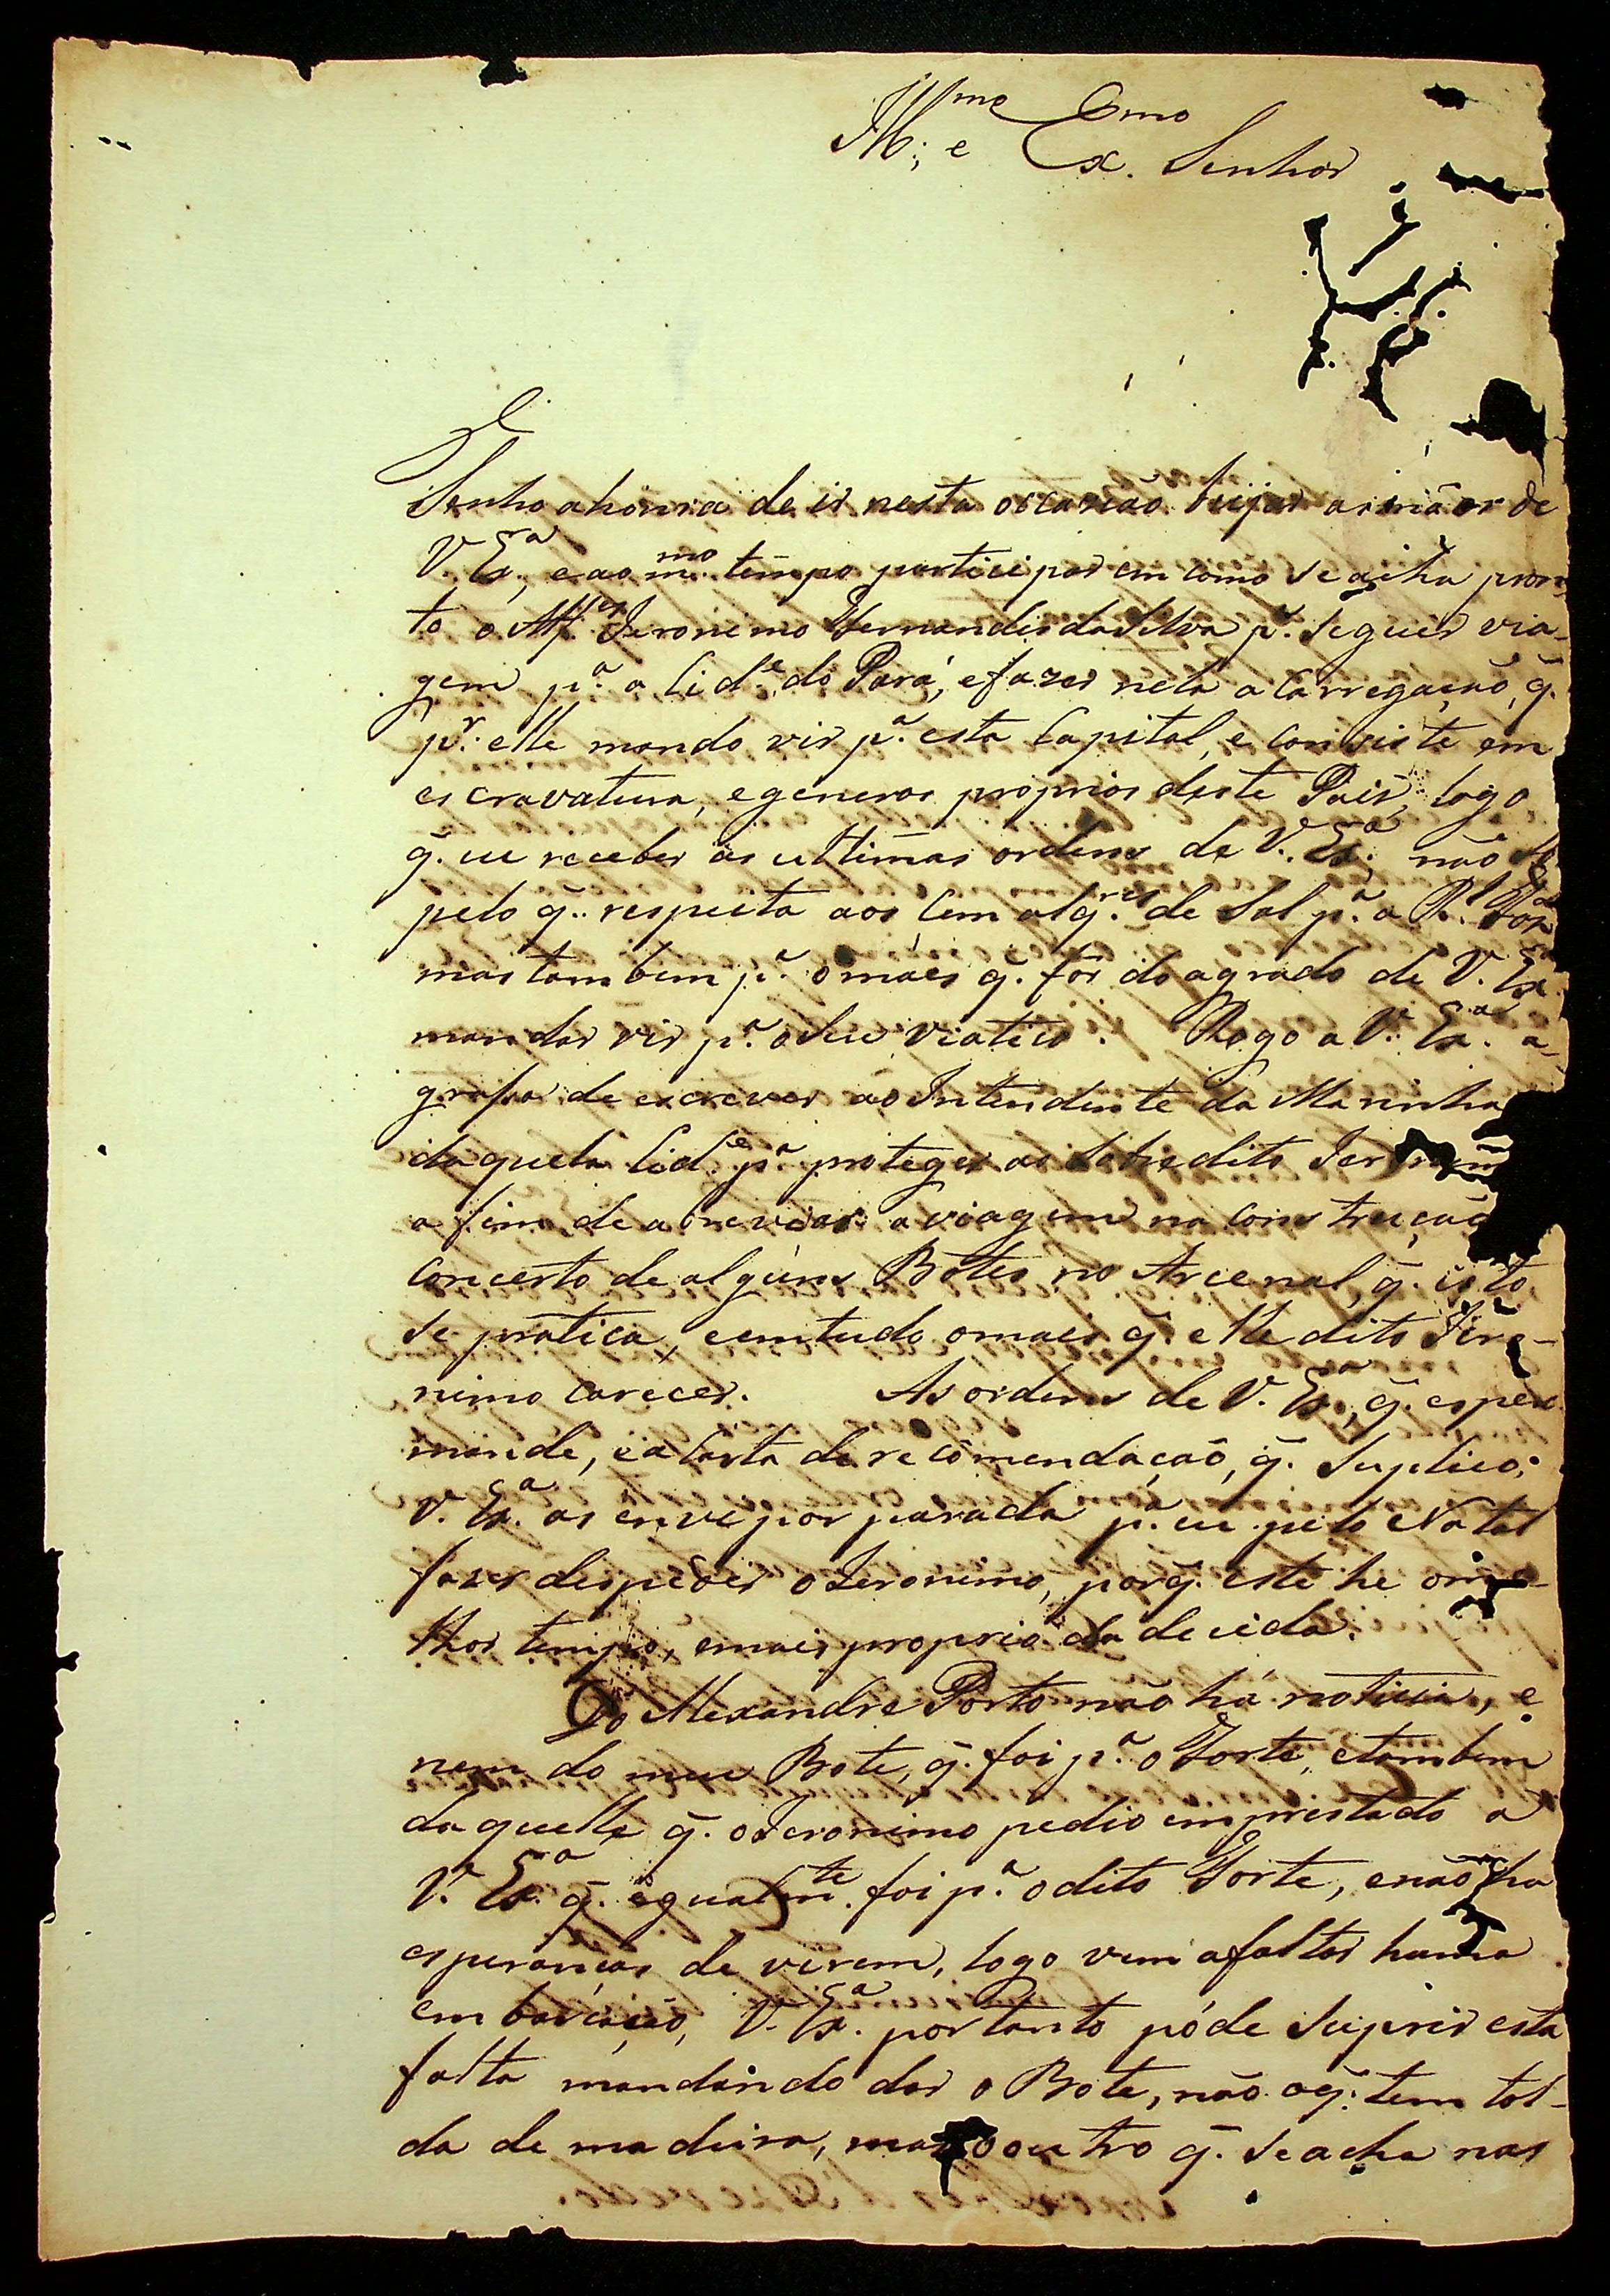 Ill.mo e Ex.mo Senhor
Tenho ahonra de ir nesta occasiao bijar asmãos de
V. Ex.a, eao m.mo tempo participar em como se acha pron
to o Alf.es Jeronimo Hernandes da Silva p.a seguir via-
gem p.a a Cid.e do Pará, efazer nela a Carregação, q̃.
p.r elle mando vir p.a esta Capital, e consiste em
escravatura, egeneros proprios deste Pais, logo
q̃. eu receber as ultimas ordens de V. Ex.a, não só
pelo q̃. respeita aos Cem alq.res de Sal p.a a R.l
mas tambem p.a omaes q̃. for do agrado de V. Ex.a
mandar vir p.a oSeu viatico. Rogo a V. Ex.a a
graça de escrever ao Intendente da Marinha
daquela Cid.e p.a proteger ao Sobredito Jeronimo
a fim de abreviar aviagem na construcção
concerto de alguns Botes no Arcenal, q̃. isto
se pratica, eemtudo omaes q̃. elle dito Jero-
nimo carecer. As ordens de V. Ex.a, q̃. espero
mande, ea Carta de recomendação, q̃. Suplico,
V. Ex.a as envie por parada p.a eu pelo Natal
fazer despedir oJeronimo, porq̃. este he ome-
lhor tempo, emais proprio da decida.
Do Alexandre Porto não há noticia, e
nem do meu Bote, q̃. foi p.a o Forte, etambem
daquelle q̃. oJeronimo pedio emprestado a
V. Ex.a q̃. egualm.te foi p.a odito Forte, enão ha
esperanças de virem, logo vem afaltar huma
embarcação, V. Ex.a portanto póde Suprir esta
falta mandando dar o Bote, não oq̃. tem tol-
da de madeira, mas o outro q̃. Seacha nas